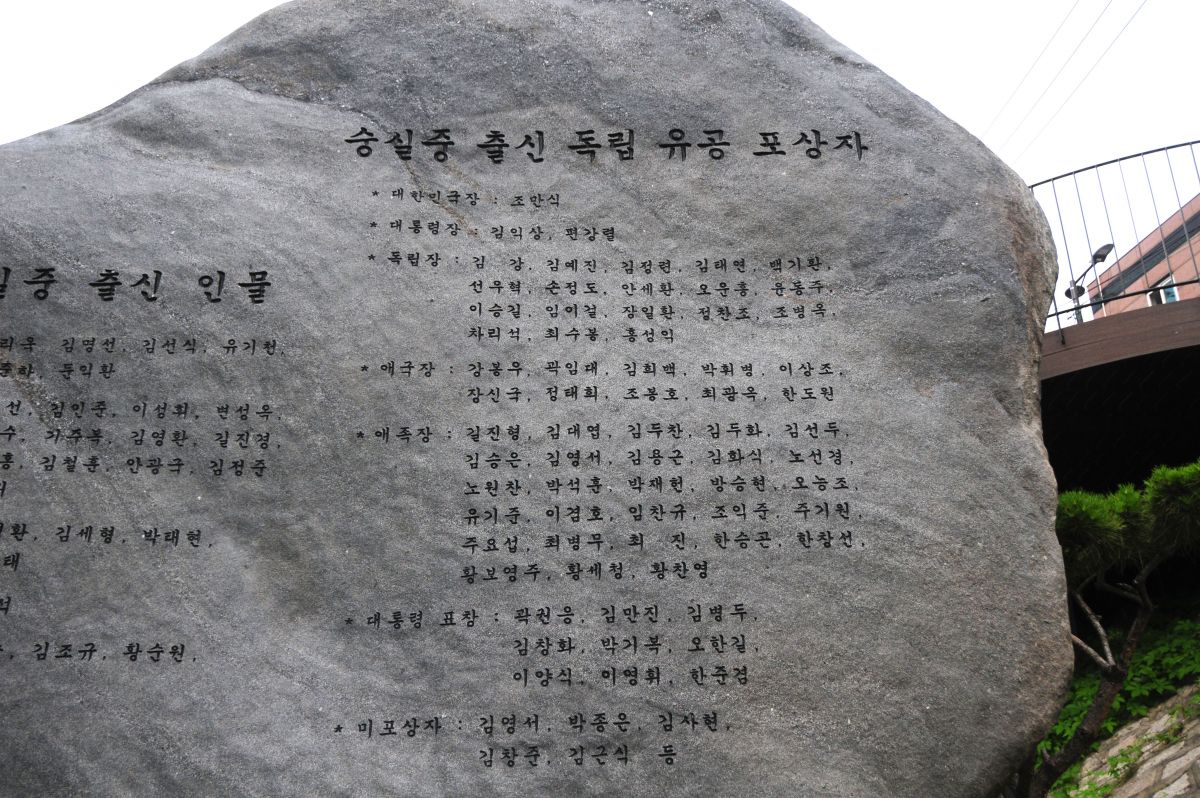 중 출신 인물
김명선, 김선식, 유기천,
윤익환
선, 김인준, 이성휘, 변성옥,
수, 기주복, 김영환, 길진경,
홍, 김철훈, 안광국, 김정준
환, 김세형, 박태현,
태
석
김조규, 황순원,
숭실중 출신 독립 유공 포상자
* 대한민국장 : 조만식
* 대통령장 : 김익상, 편강렬
* 독립장 : 김 강, 김예진, 김정련, 김태연, 백기환,
선우혁, 손정도, 안세환, 오운흥, 윤동주,
이승길, 임이걸, 장일환, 정찬조, 조병옥,
차리석, 최수봉, 홍성익
* 애국장 : 강봉우, 곽임대, 김희백, 박휘병, 이상조,
장신국, 정태희, 조봉호, 최광옥, 한도원
* 애족장 : 길진형, 김대엽, 김두찬, 김두화, 김선두,
김승은, 김영서, 김용근, 김화식, 노선경,
노원찬, 박석훈, 박재헌, 방승현, 오능조,
유기준, 이겸호, 임찬규, 조익준, 주기원,
주요섭, 최병무, 최 진, 한승곤, 한창선,
황보영주, 황세청, 황찬영
* 대통령 표창 : 곽권응, 김만진, 김병두,
김창화, 박기복, 오한길,
이양식, 이영휘, 한준겸
* 미포상자 : 김영서, 박종은, 김사현,
김창준, 김근식 등